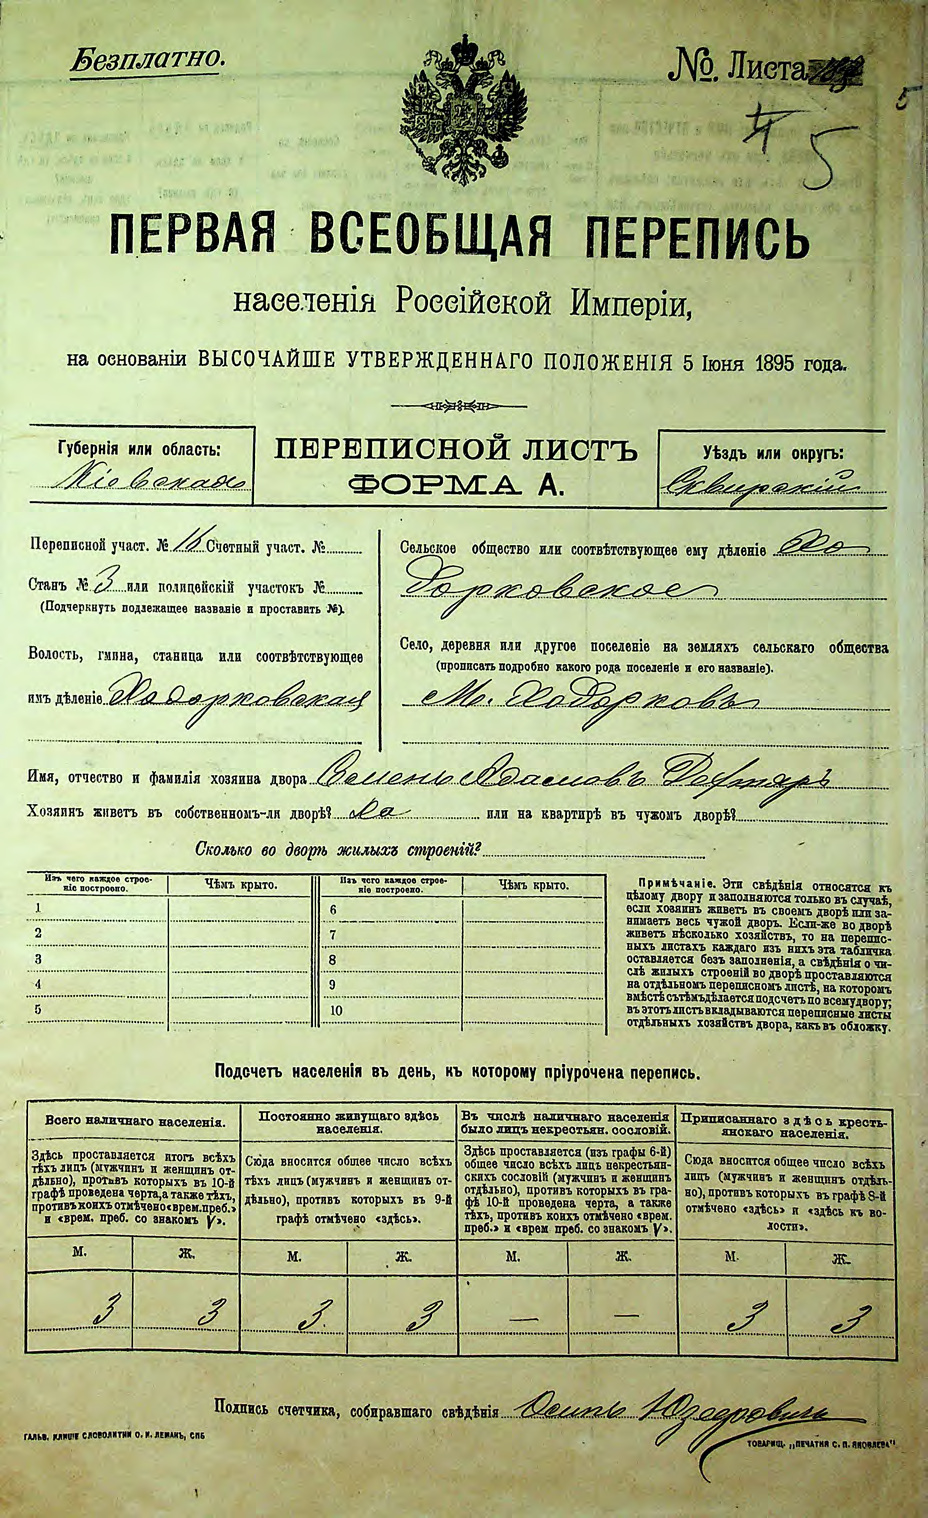 Безплатно.
№. Листа
5
5
ПЕРВАЯ ВСЕОБЩАЯ ПЕРЕПИСЬ
населенія Россійской Имперіи,
на основаніи ВЫСОЧАЙШЕ УТВЕРЖДЕННАГО ПОЛОЖЕНІЯ 5 Іюня 1895 года.
Губернія или область:
Кіевская
ПЕРЕПИСНОЙ ЛИСТЪ
ФОРМА А.
Уѣздъ или округъ:
Сквирскій
Переписной участ. № 16 Счетный участ. №
Станъ № 3 или полицейскій участокъ №
(Подчеркнуть подлежащее названіе и проставить №).
Волость, гмина, станица или соотвѣтствующее
имъ дѣленіе Ходорковская
Сельское общество или соотвѣтствующее ему дѣленіе Хо
дорковское
Село, деревня или другое поселеніе на земляхъ сельскаго общества
(прописать подробно какого рода поселеніе и его названіе).
М. Ходорковъ
Имя, отчество и фамилія хозяина двора Семенъ Адамовъ Дегтяръ
Хозяинъ живетъ въ собственномъ-ли дворѣ? да или на квартирѣ въ чужомъ дворѣ?
Сколько во дворѣ жилыхъ строеній?
Изъ чего каждое строе-
ніе построено.
Чѣмъ крыто.
Изъ чего каждое строе-
ніе построено.
Чѣмъ крыто.
1 6
2 7
3 8
4 9
5 10
Примѣчаніе. Эти свѣдѣнія относятся къ
цѣлому двору и заполняются только въ случаѣ,
если хозяинъ живетъ въ своемъ дворѣ или за-
нимаетъ весь чужой дворъ. Если-же во дворѣ
живетъ нѣсколько хозяйствъ, то на перепис-
ныхъ листахъ каждаго изъ нихъ эта табличка
оставляется безъ заполненія, а свѣдѣнія о чи-
слѣ жилыхъ строеній во дворѣ проставляются
на отдѣльномъ переписномъ листѣ, на которомъ
вмѣстѣ съ тѣмъ дѣлается подсчетъ по всему двору;
въ этотъ листъ вкладываются переписные листы
отдѣльныхъ хозяйствъ двора, какъ въ обложку.
Подсчетъ населенія въ день, къ которому пріурочена перепись.
Всего наличнаго населенія.
Здѣсь проставляется итогъ всѣхъ
тѣхъ лицъ (мужчинъ и женщинъ от-
дѣльно), противъ которыхъ въ 10-й
графѣ проведена черта, а также тѣхъ,
противъ коихъ отмѣчено «врем. преб.»
и «врем. преб. со знакомъ V».
Постоянно живущаго здѣсь
населенія.
Сюда вносится общее число всѣхъ
тѣхъ лицъ (мужчинъ и женщинъ от-
дѣльно), противъ которыхъ въ 9-й
графѣ отмѣчено «здѣсь».
Въ числѣ наличнаго населенія
было лицъ некрестьян. сословій.
Здѣсь проставляется (изъ графы 6-й)
общее число всѣхъ лицъ некрестьян-
скихъ сословій (мужчинъ и женщинъ
отдѣльно), противъ которыхъ въ гра-
фѣ 10-й проведена черта, а также
тѣхъ, противъ коихъ отмѣчено «врем.
преб.» и «врем. преб. со знакомъ V».
Приписаннаго здѣсь кресть-
янскаго населенія.
Сюда вносится общее число всѣхъ
лицъ (мужчинъ и женщинъ отдѣль-
но), противъ которыхъ въ графѣ 8-й
отмѣчено «здѣсь» и «здѣсь къ во-
лости».
М. Ж. М. Ж. М. Ж. М. Ж.
3 3 3 3 — — 3 3
Подпись счетчика, собиравшаго свѣдѣнія Осипъ
ГАЛЬВ. КЛИШЕ СЛОВОЛИТНИ О. И. ЛЕМАНЪ, СПБ
ТОВАРИЩ. „ПЕЧАТНЯ С. П. ЯКОВЛЕВА"